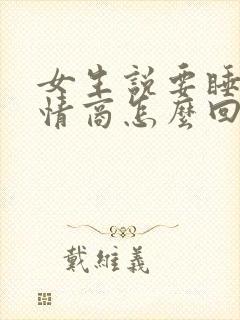 女生說要睡
情商怎麼回
戴維義